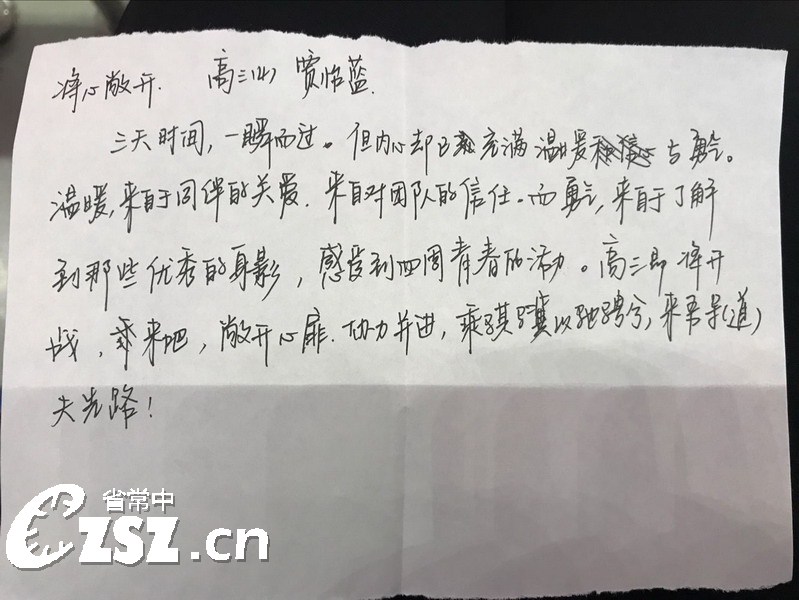 将心敞开. 高三(1) 贾怡蓝.
三天时间，一瞬而过。但内心却已充满温暖与勇气。
温暖,来自于同伴的关爱.来自对团队的信任。而勇气,来自于了解
到那些优秀的身影，感受到四周青春的活力。高三即将开
战，来吧，敞开心扉.协力并进，乘骐骥以驰骋兮，来吾导(道)
夫先路！
省常中
czsz.cn